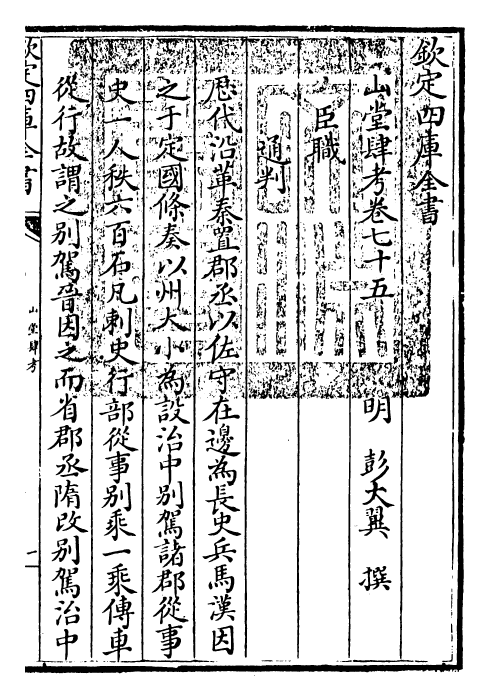 欽定四庫全書
山堂肆考卷七十五
明 彭大翼 撰
臣職
通判
歴代沿革秦置郡丞以佐守在邊為長史兵馬漢因
之于定國條奏以州大小為設治中别駕諸郡從事
史一人秩六百石凡刺史行部從事别乘一乘傳車
從行故謂之别駕晉因之而省郡丞隋改别駕治中
欽定四庫全書
山堂肆考
一